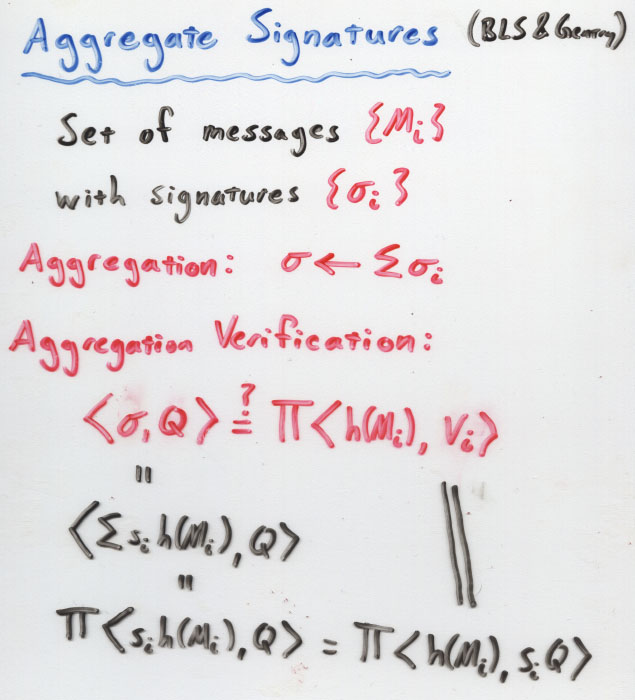 Aggregate Signatures (BLS & Gentry)
Set of messages {Mᵢ}
with signatures {σᵢ}
Aggregation: σ ← Σσᵢ
Aggregation Verification:
⟨σ, Q⟩ ≟ Π⟨h(Mᵢ), Vᵢ⟩
=
⟨Σ sᵢ h(Mᵢ), Q⟩
=
Π⟨sᵢ h(Mᵢ), Q⟩ = Π⟨h(Mᵢ), sᵢ Q⟩